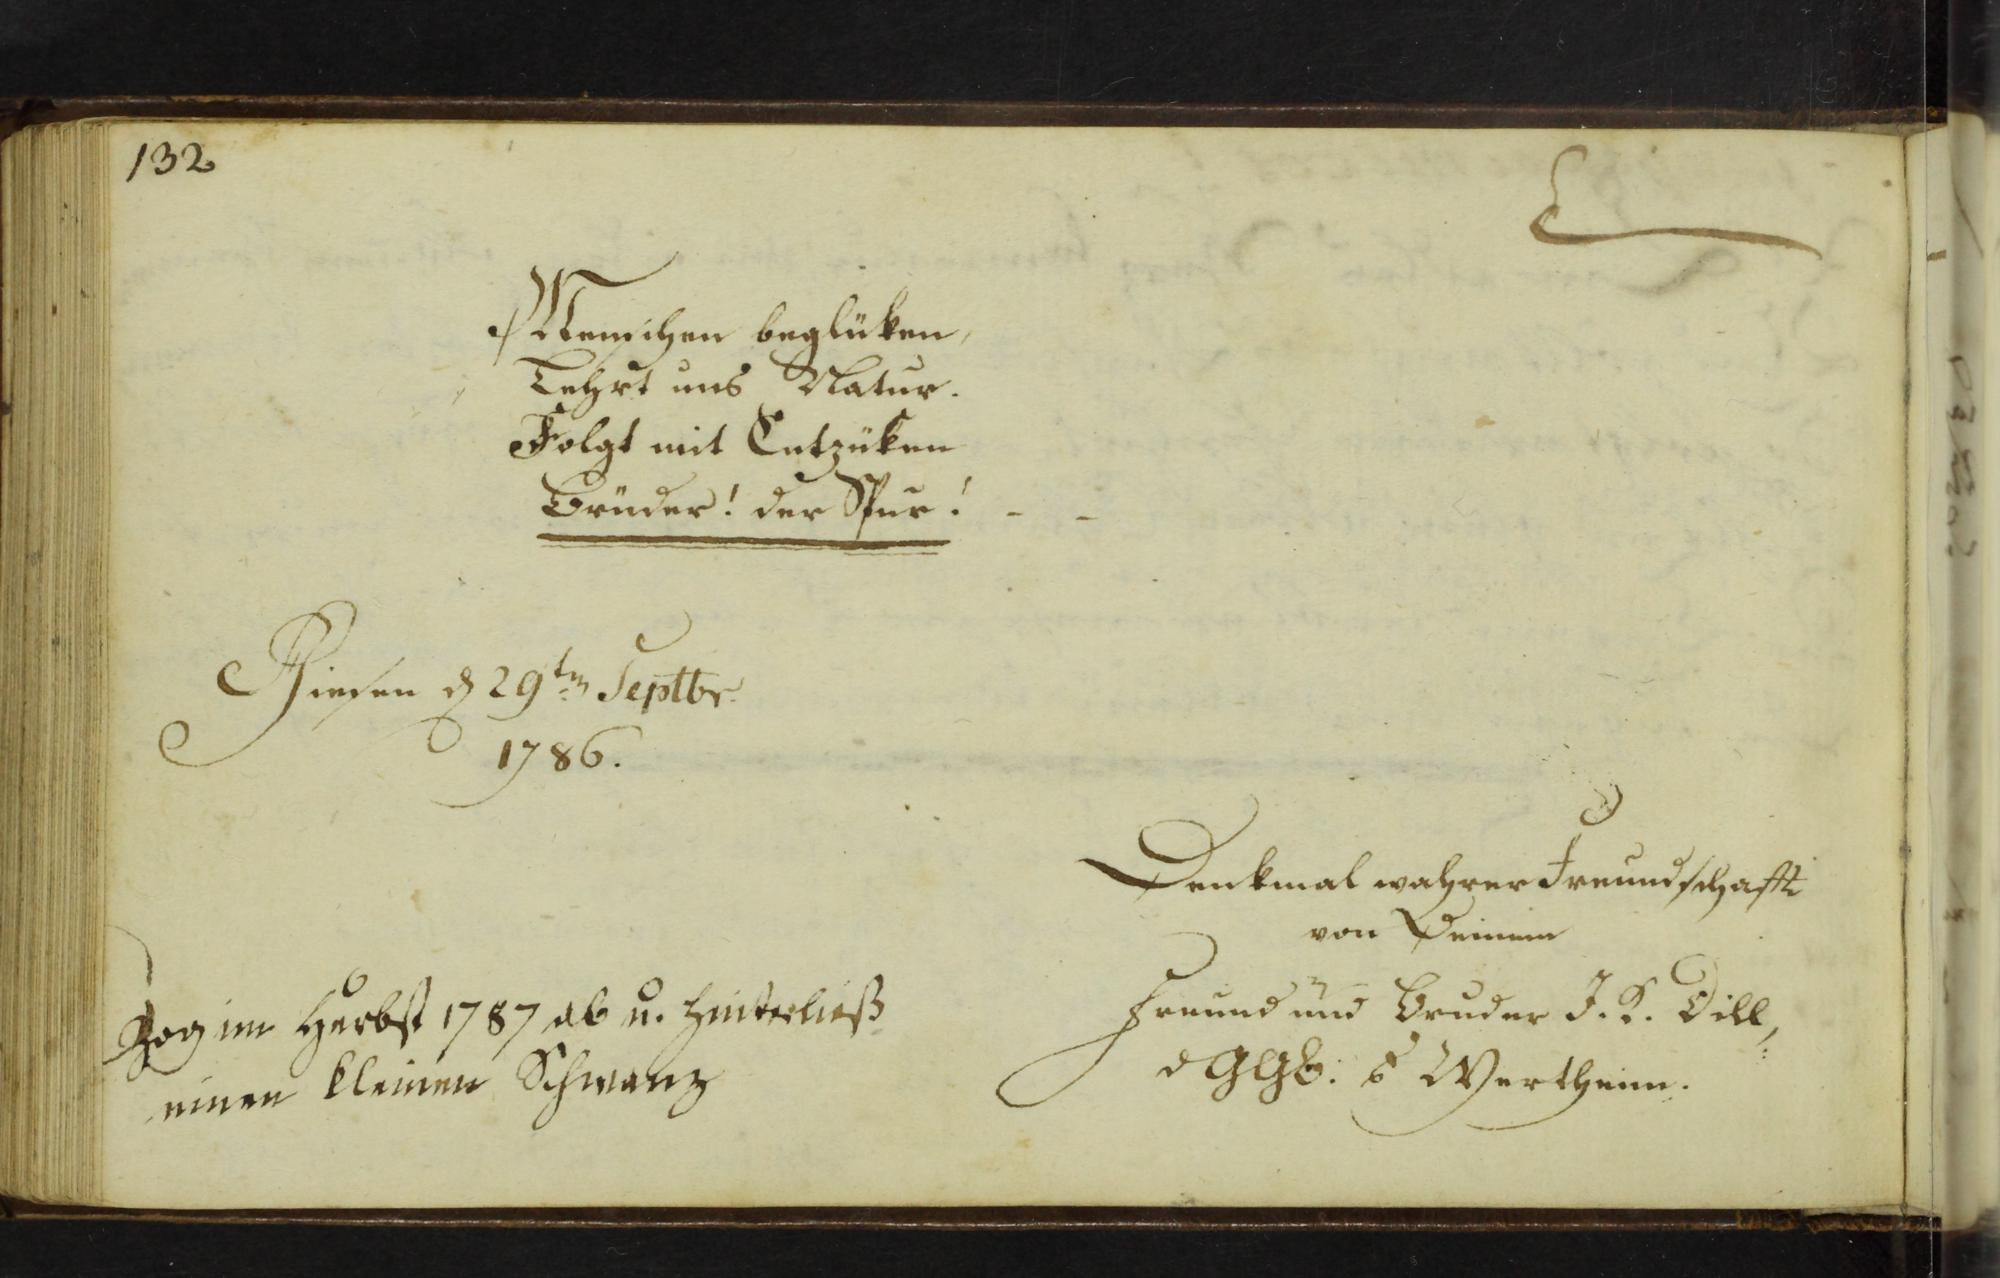 132
Menschen beglüken,
Lehrt uns Natur.
Folgt mit Entzüken
Brüder! der Spur! - -
Giesen d 29ten Septbr.
1786.
Denkmal wahrer Freundschafft
von Deinem
Freund und Bruder J. K. Dill,
d GGB: a Wertheim.
Zog im Herbst 1787 ab u. hinterließ
einen kleinen Schwanz